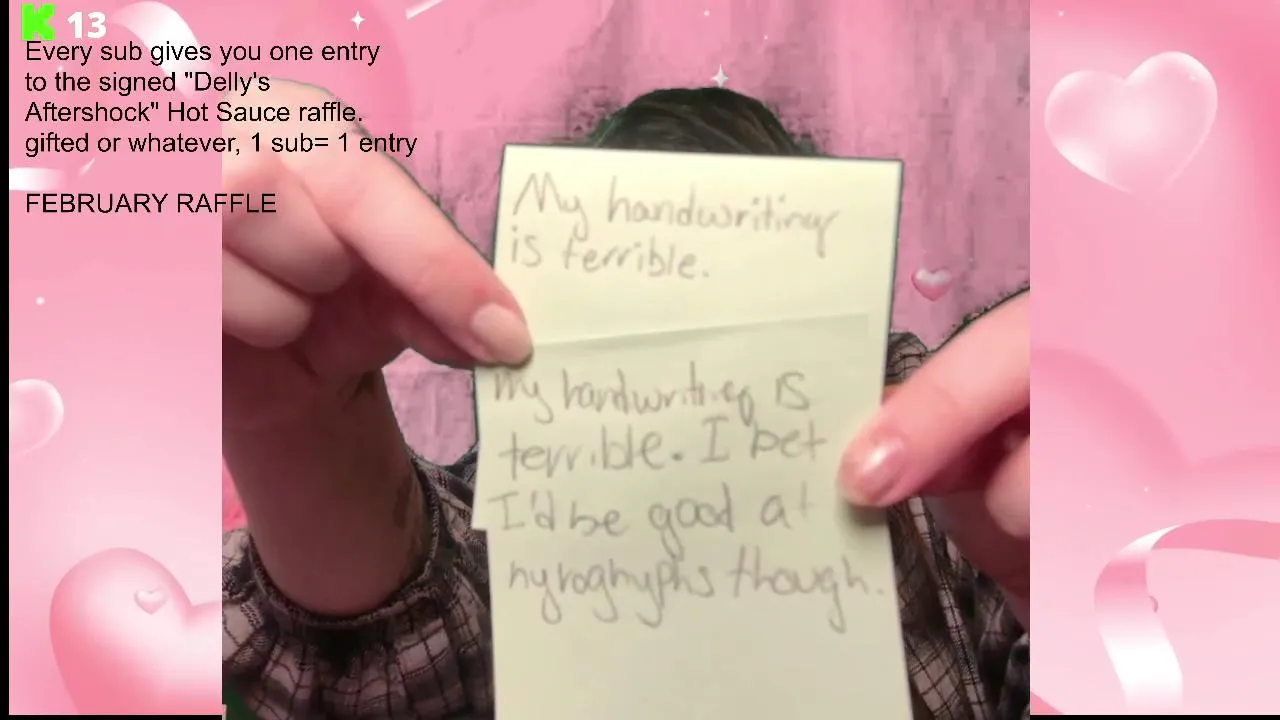 K 13
Every sub gives you one entry
to the signed "Delly's
Aftershock" Hot Sauce raffle.
gifted or whatever, 1 sub= 1 entry
FEBRUARY RAFFLE
My handwriting
is terrible.
My handwriting is
terrible. I bet
I'd be good at
hyroghyphs though.